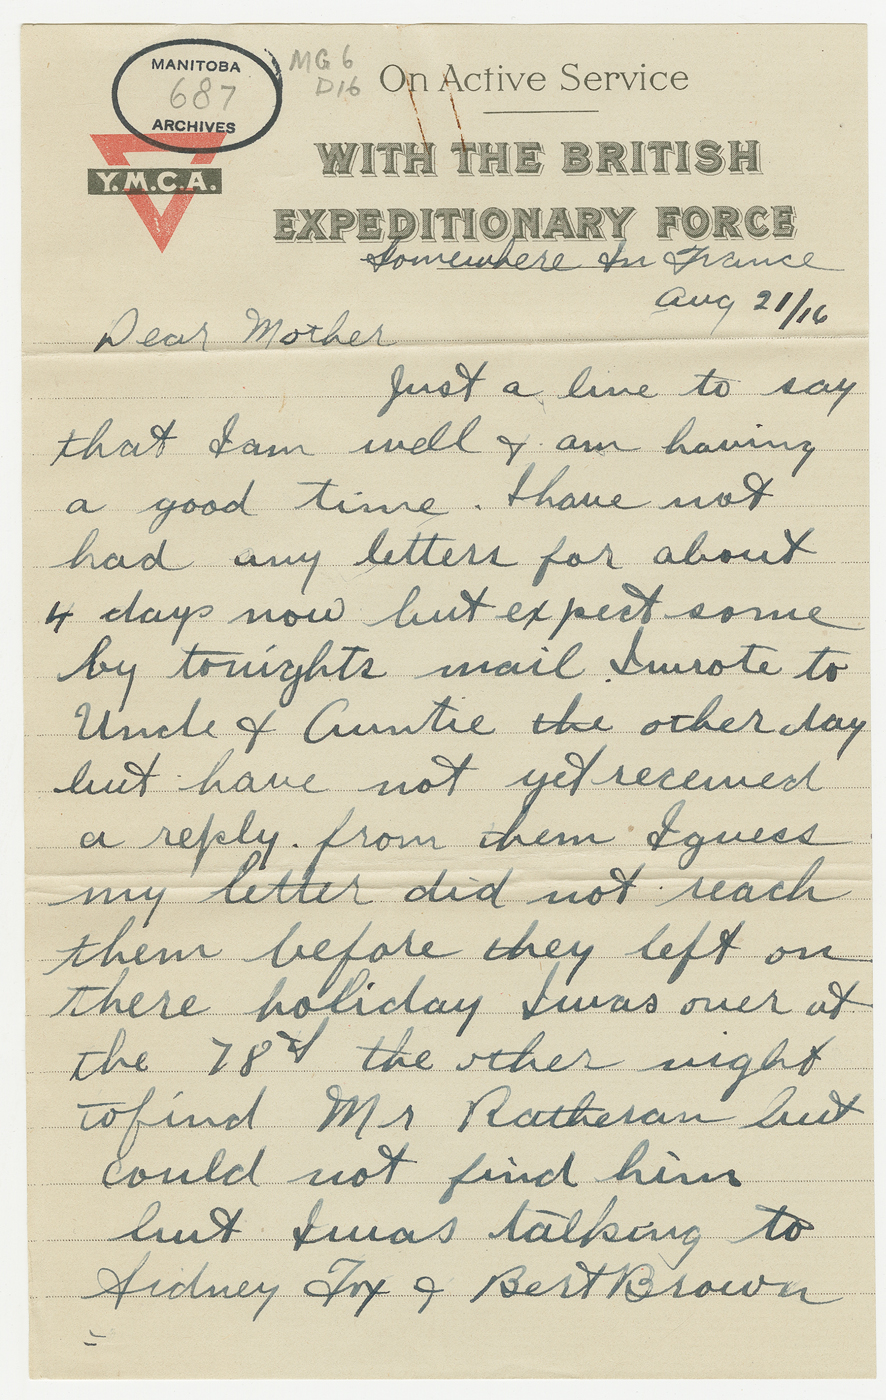 MANITOBA
687
ARCHIVES
MG 6
D16
On Active Service
Y.M.C.A.
WITH THE BRITISH
EXPEDITIONARY FORCE
Somewhere In France
Aug 21/16
Dear Mother
Just a line to say
that I am well & am having
a good time. I have not
had any letters for about
4 days now but expect some
by tonights mail I wrote to
Uncle & Auntie the other day
but have not yet received
a reply. from them I guess
my letter did not reach
them before they left on
there holiday I was over at
the 78th the other night
to find Mr Ratheran but
could not find him
but I was talking to
Sidney Fox & Bert Brown